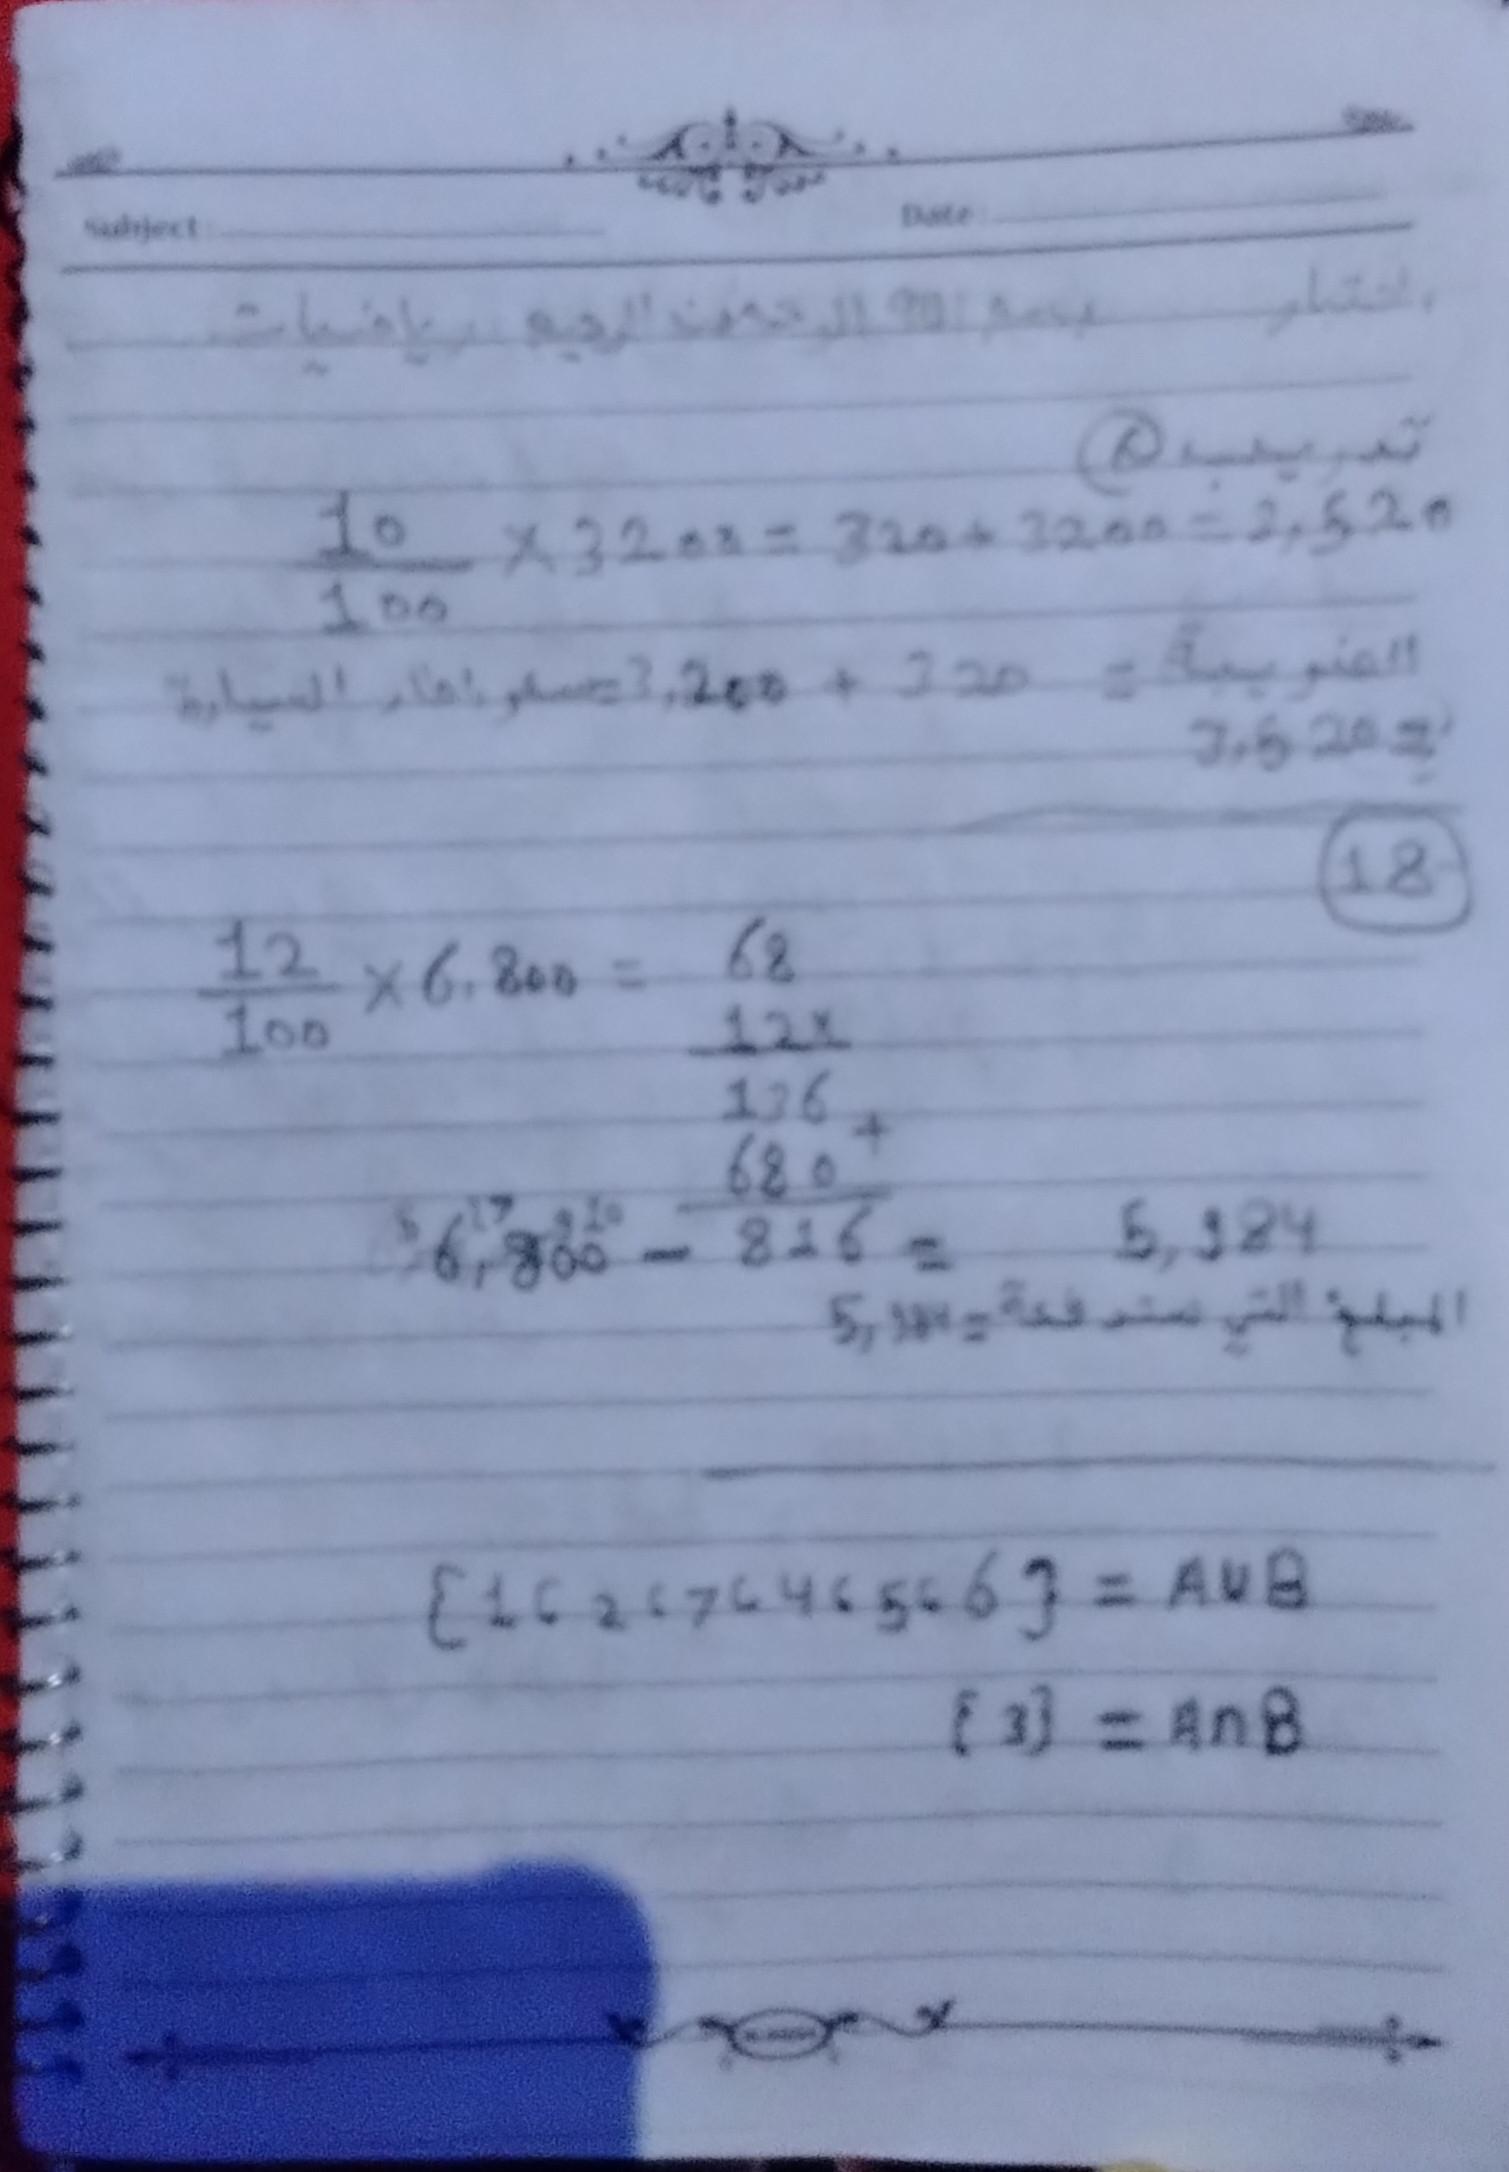 Subject:
Date:
اختبار بسم الله الرحمن الرحيم رياضيات
تدريب
10/100 × 3200 = 320 + 3200 = 3,520
الضريبة = 320 + 3,200 = سعر اطار السيارة
= 3,520
18
12/100 × 6.800 = 68
12 ×
136 +
680
5 17 9 10
6,800 - 816 = 5,984
المبلغ التي ستدفعة = 5,984
{1 ، 2 ، 7 ، 4 ، 5 ، 6} = A∪B
{3} = A∩B